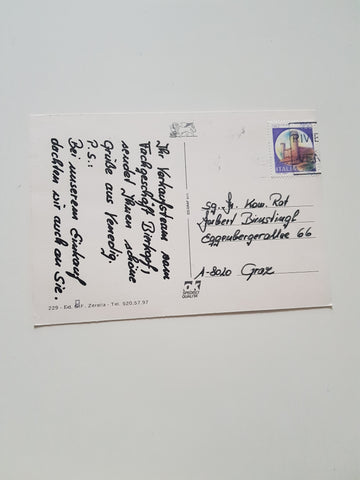 Ihr Verkaufsteam vom
Fachgeschäft Birkopf,
sendet Ihnen schöne
Grüße aus Venedig.
P.S.:
Bei unserem Einkauf
dachten wir auch an Sie.
ITALIA
Sg. Hr. Kom. Rat
Eggenbergerallee 66
A-8020 Graz
229 - Ed. G.F. Zerella - Tel. 920.57.97